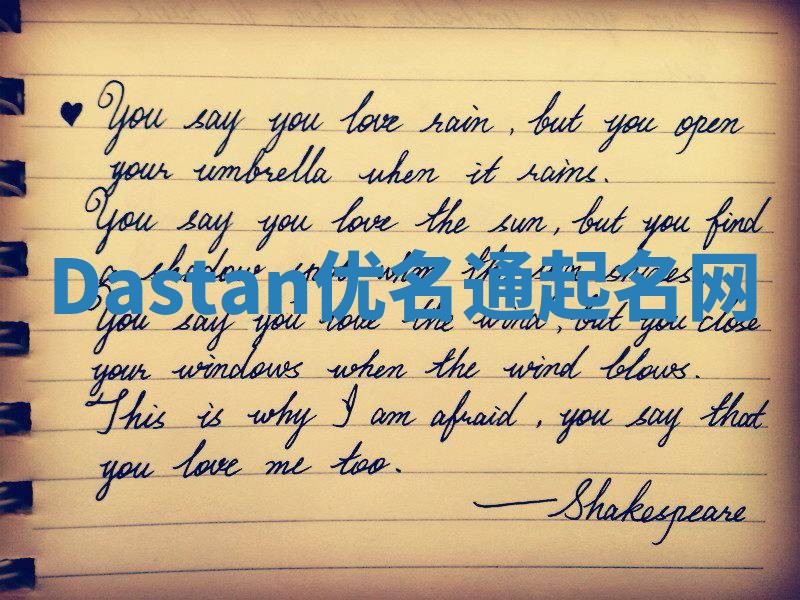 ♥ You say you love rain, but you open
your umbrella when it rains.
You say you love the sun, but you find
a shadow spot when the sun shines.
Dastan优名通起名网
You say you love the wind, but you close
your windows when the wind blows.
This is why I am afraid, you say that
you love me too.
— Shakespeare